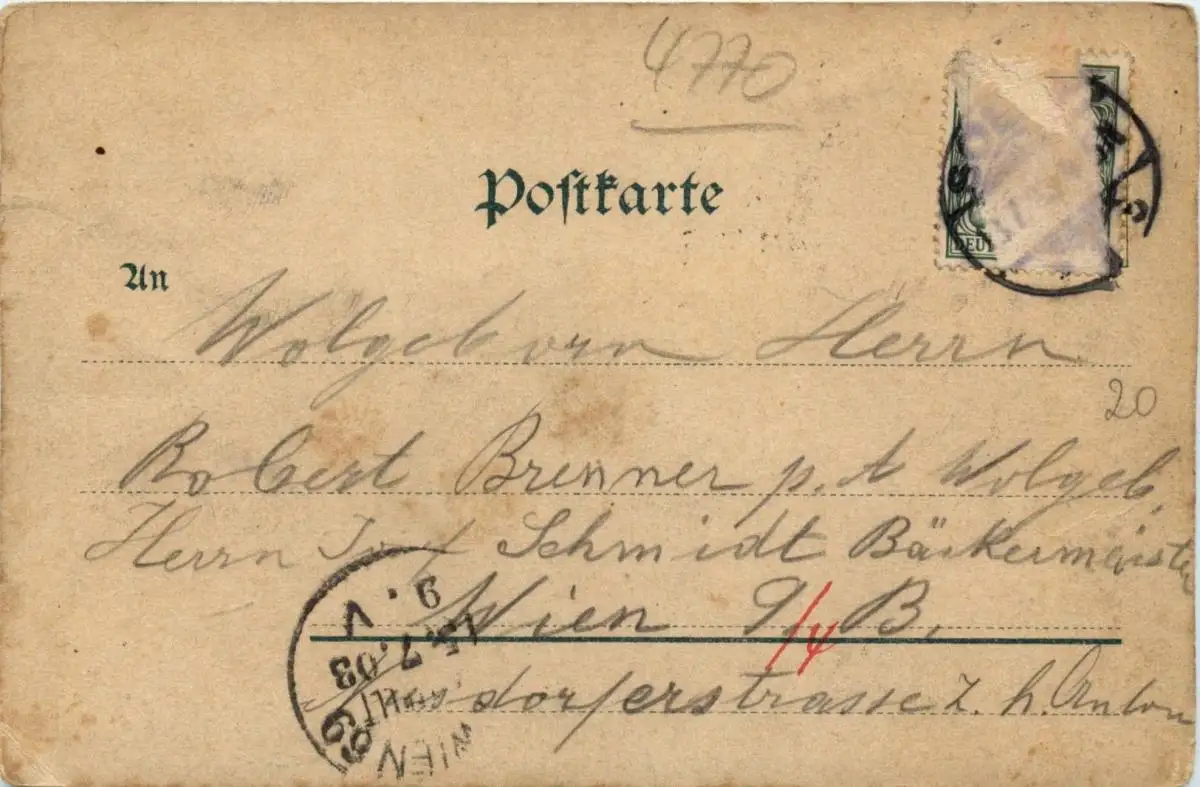 4770
Postkarte
DEUT
An
Wolgeborn Herrn
20
Robert Brenner p. A Wolgeb.
Herrn Schmidt Bäckermeister
Wien 9/4 B.
z. h. Anton
WIEN
69
15.7.03
9. V